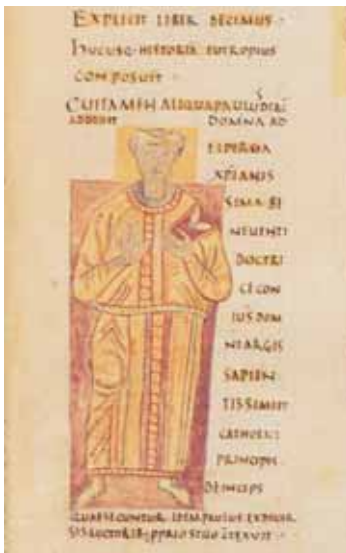 EXPLICIT LIBER DECIMUS ·
HUCUSQ· HISTORIA EUTROPIUS
COMPOSUIT ·
CUI TAMEN ALIQUA PAULUS
ADDIDIT DOMNA AD
ELPERGA
XPIANIS
SIMA BE
NEUENTI
DUCTRI
CE CON
IUS DOM
NI ARGIS
SAPIEN
TISSIMI ET
CATHOLICI
PRINCIPIS
DEINCEPS
QUAE SECUNTUR IDEM PAULUS EX DIUER
SIS AUCTORIB; PPRIO STILO CTEXUIT